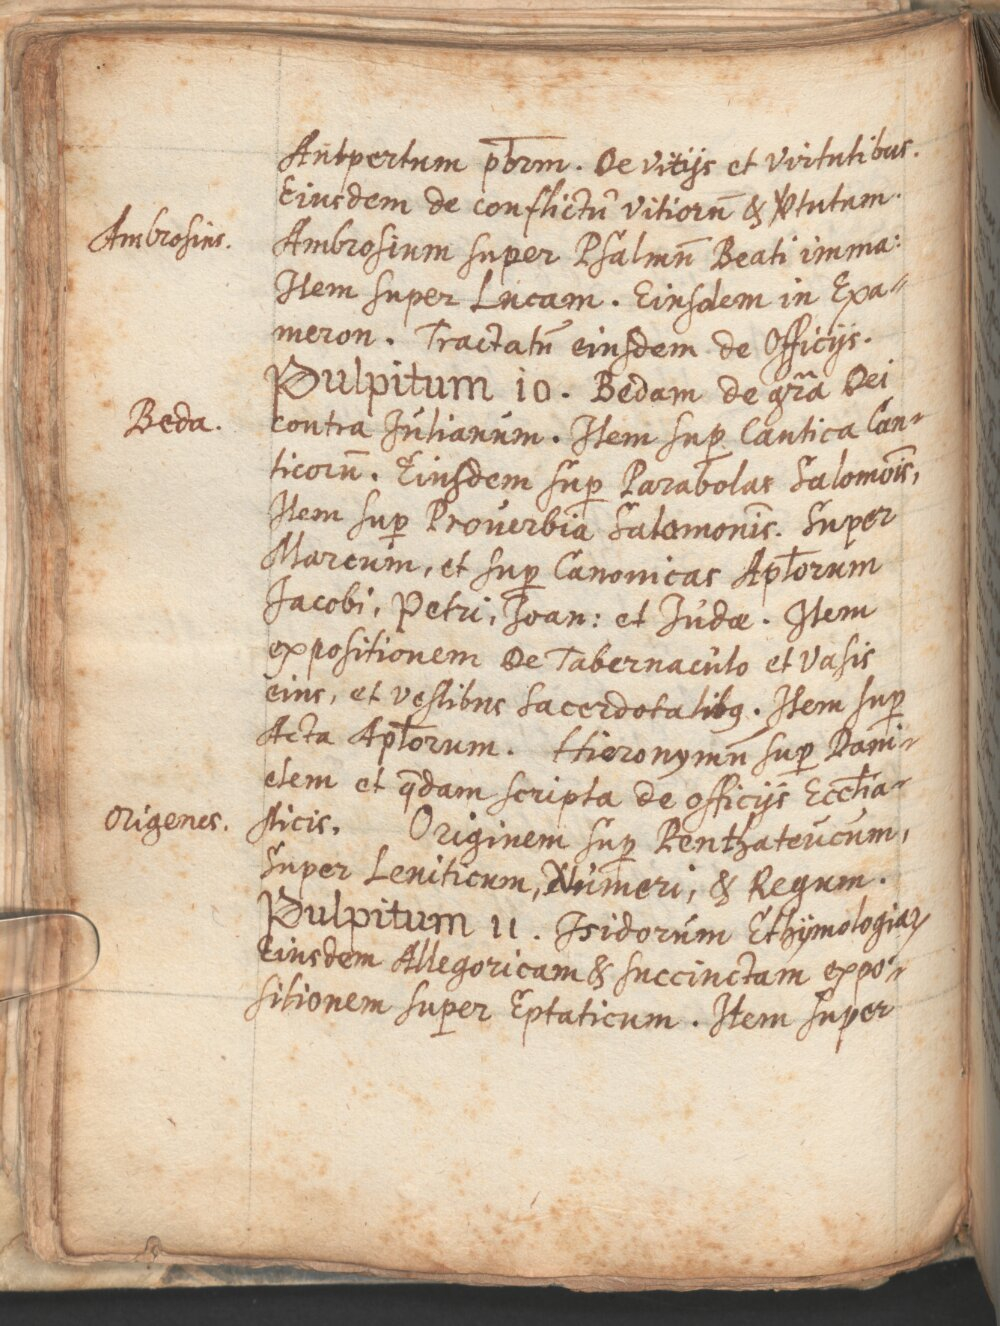 Autpertum pbr̄m. De vitijs et virtutibus.
Eiusdem de conflictū vitiorū & Vtutum.
Ambrosius.
Ambrosium super Psalmū Beati imma:
Item super Lucam. Eiusdem in Exa=
meron. Tractatū eiusdem de Officijs.
Pulpitum 10. Bedam de gr̄a Dei
Beda.
contra Julianum. Item sup̱ Cantica Can=
ticorū. Eiusdem sup̱ Parabolas Salomōis,
Item sup̱ Proverbia Salomonis. Super
Marcum, et sup̱ Canonicas Apl̄orum
Jacobi, Petri, Joan: et Judæ. Item
expositionem De Tabernaculo et Vasis
eius, et vestibus Sacerdotalibꝫ. Item sup̱
Acta Apl̄orum. Hieronymū sup̱ Dani=
elem et q̄dam scripta de officijs Eccl̄ia=
Origenes.
sticis. Originem sup̱ Penthateucum,
Super Leuiticum, Numeri, & Regum.
Pulpitum 11. Isidorum Ethymologiaꝝ
Eiusdem Allegoricam & succinctam expo=
sitionem super Eptaticum. Item super